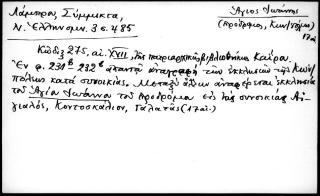 Λάμπρος, Σύμμικτα,
Ν. Ἑλληνομν. 3 σ. 485
Ἅγιος Ἰωάννης
(Πρόδρομος, Κων/πόλις)
17αι
Κώδιξ 275, αἰ. XVII, τῆς πατριαρχικῆς βιβλιοθήκης Καΐρου.
Ἐν φ. 231β 232β ἀπαντᾷ ἀναγραφὴ τῶν ἐκκλησιῶν τῆς Κων/
πόλεως κατὰ συνοικίας. Μεταξὺ ἄλλων ἀναφέρεται ἐκκλησία
τοῦ Ἁγίου Ἰωάννου τοῦ Προδρόμου εἰς τὰς συνοικίας Αἰ-
γιαλός, Κοντοσκάλιον, Γαλατᾶς (17αι.)